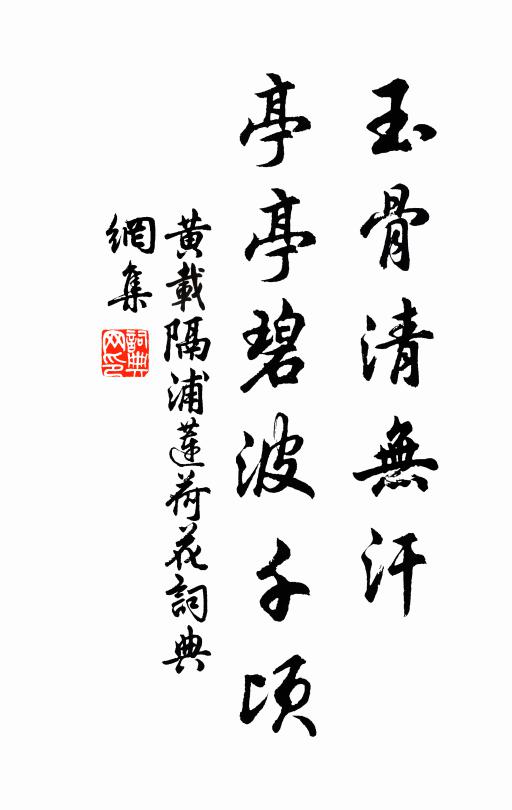 玉骨清無汗
亭亭碧波千頃
黃載隔浦蓮荷花詞典
網集
詞典
网印